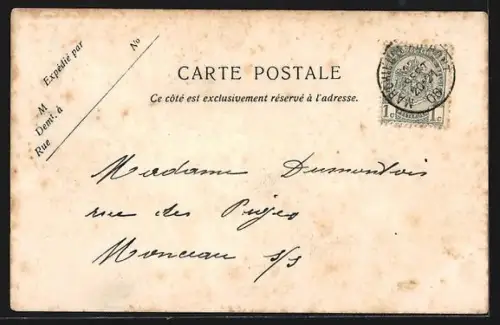 Expédié par
No
M
Demt. à
Rue
CARTE POSTALE
Ce côté est exclusivement réservé à l'adresse.
1c 1c
Madame Dumontois
rue des
Monceau s/s